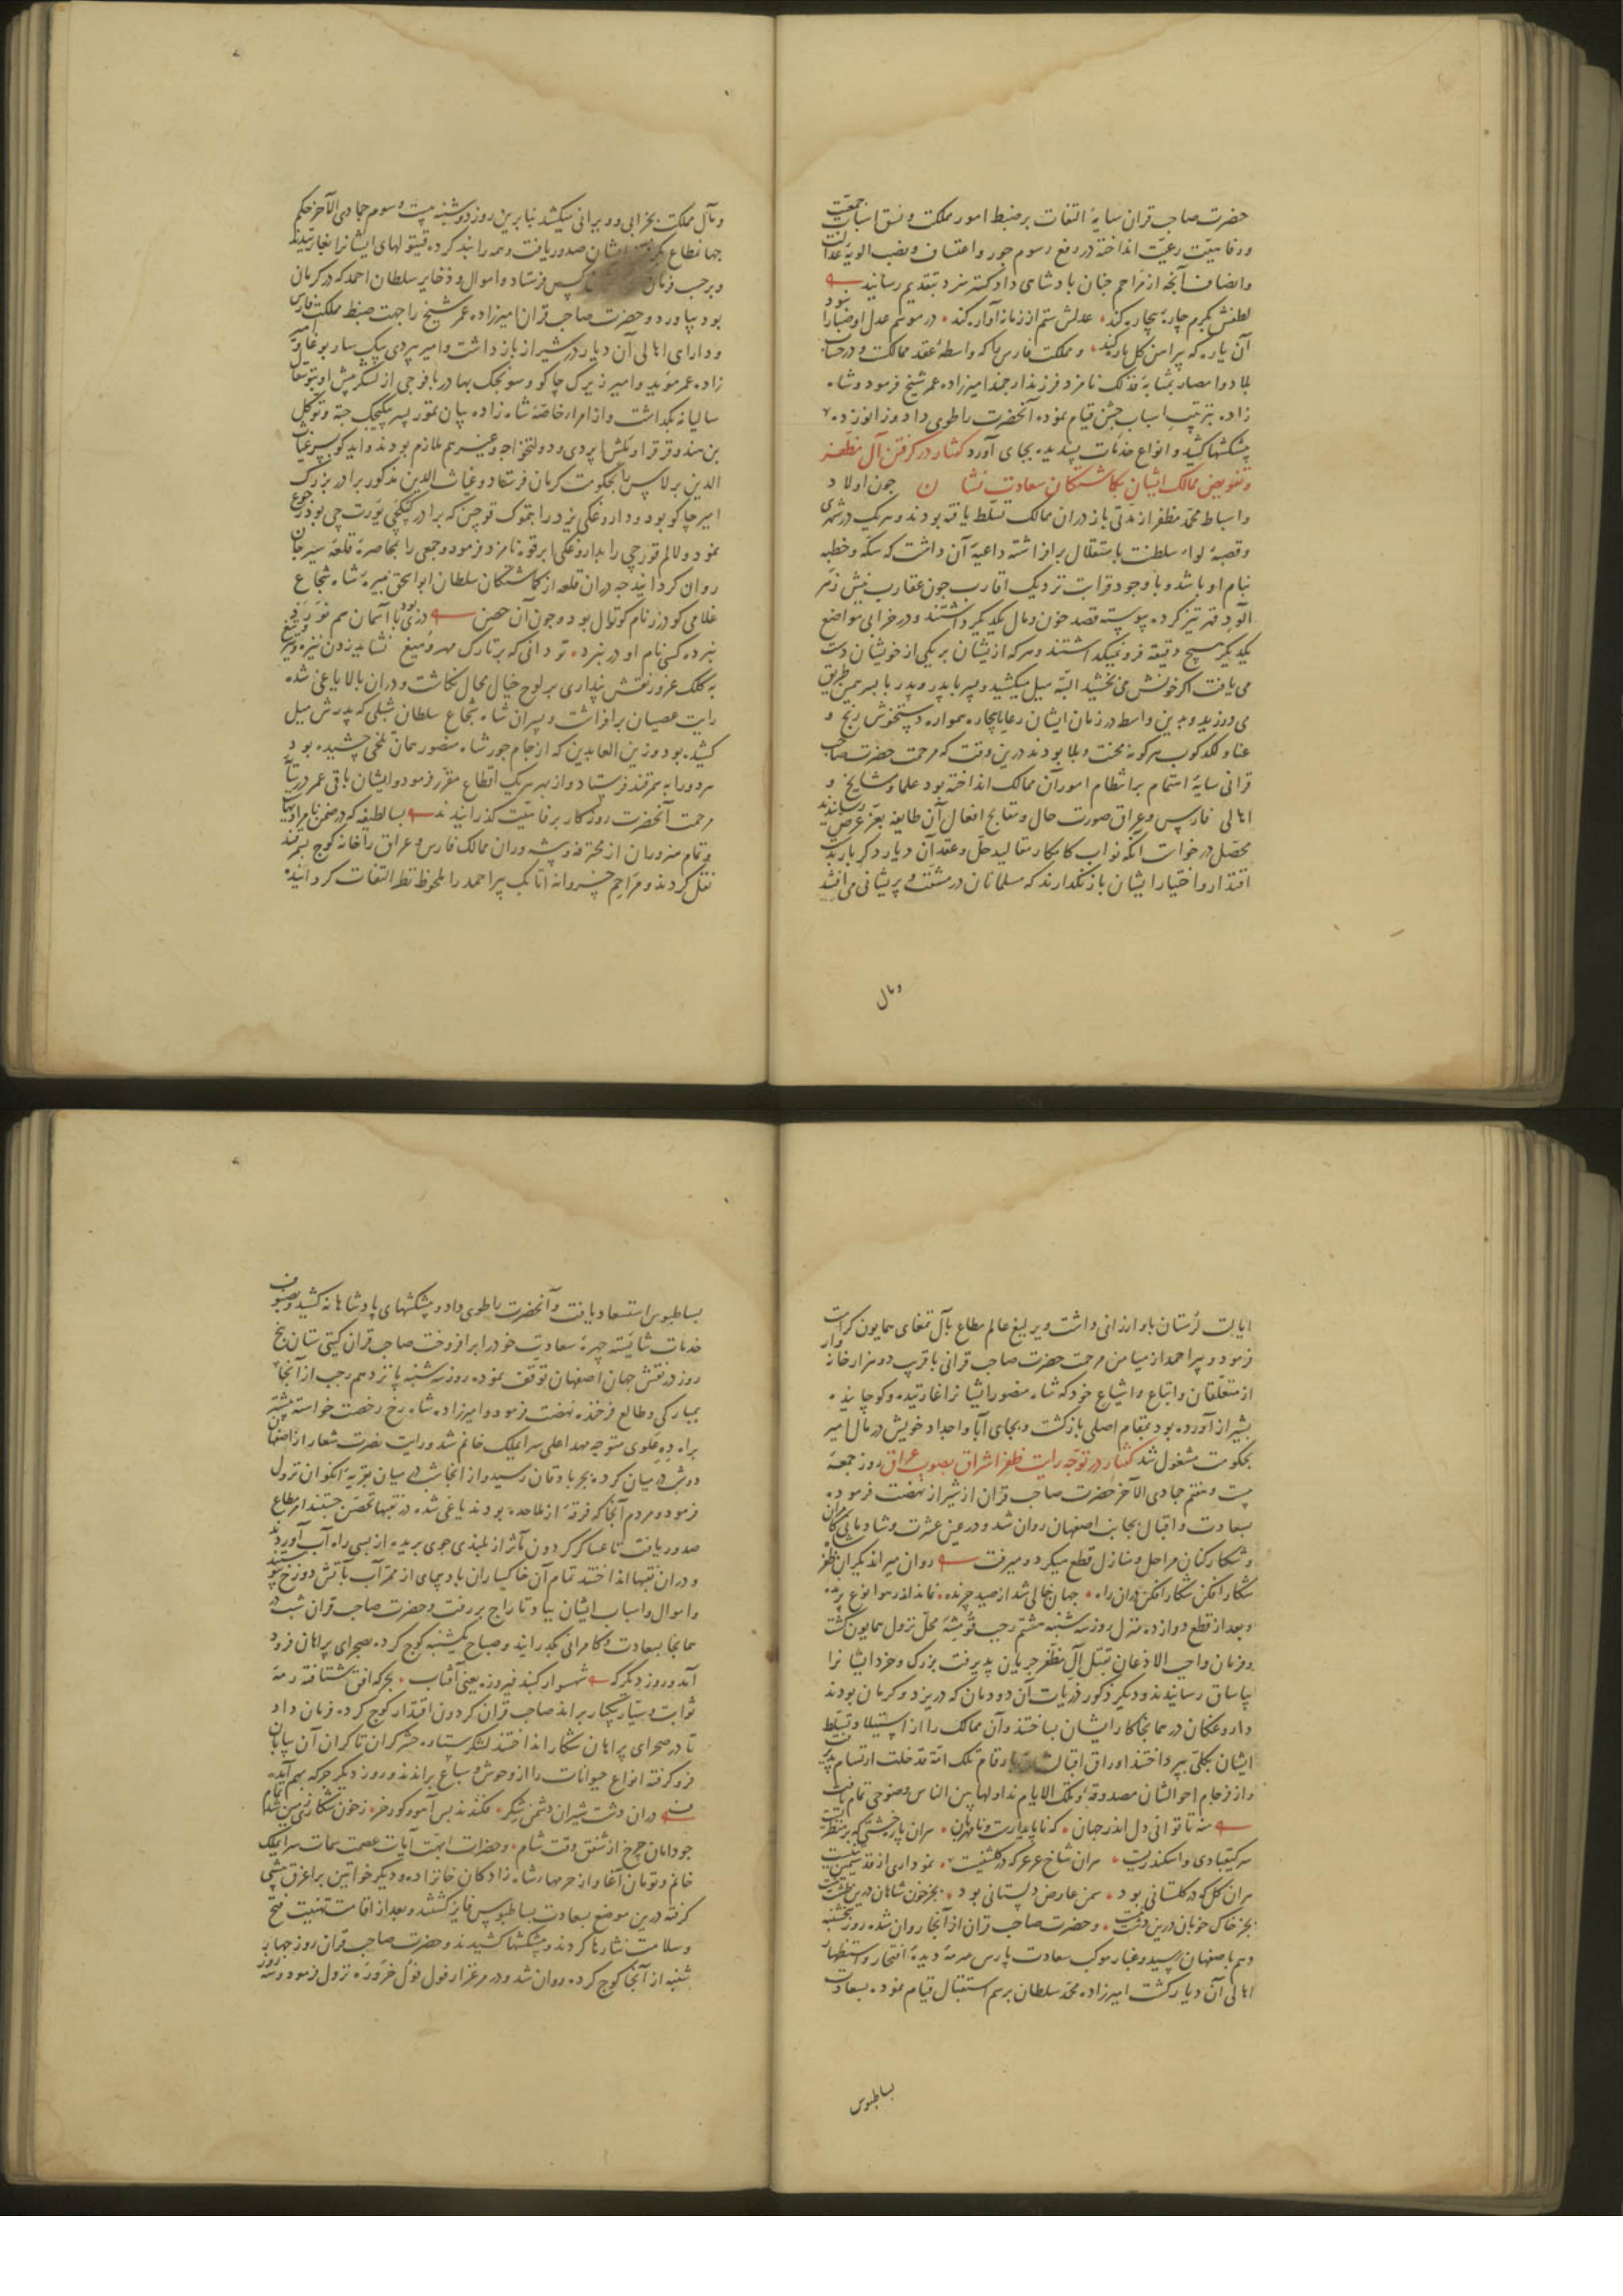 حضرت صاحب قران سایهٔ التفات بر ضبط امور مملکت و نسق اسباب جمعیّت
ورفاهیّت رعیّت انداخته در رفع رسوم جور واعتساف و نصب الویهٔ عدالت
وانصاف آنچه از مراحم جنان بادشاهی داد کستر سزد بتقدیم رسانید
لطفش بکرم چارهٔ بیچاره کند عدلش ستم از زمانه آواره کند در موسم عدل او صبا را نبود
آن یاره که پیراهن کل پاره کند و مملکت فارس را که واسطهٔ عقد ممالک و در حساب
بلاد وامصار بمثابهٔ فذلک نامزد فرزند ارجمند امیرزاده عمر شیخ فرمود و شاه
زاده بترتیب اسباب جشن قیام نموده آنحضرت را طوی داد و زانو زده
پیشکشها کشید و انواع خدمات پسندیده بجای آورد کفتار در کرفتن آل مظفر
وتفویض ممالک ایشان بکماشتکان سعادت نشان جون اولاد
واسباط محمّد مظفر از مدّتی باز در ان ممالک تسلّط یافته بودند و هر یک در شهری
وقصبهٔ لواء سلطنت باستقلال برافراشته داعیهٔ آن داشت که سکّه و خطبه
بنام او باشد و با وجود قرابت نزدیک اقارب جون عقارب نیش زهر
آلود قهر تیز کرده پیوسته قصد خون و مال یکدیکر داشتند و در خرابی مواضع
یکدیکر هیچ دقیقه فرو نمیکذاشتند و هر که از ایشان بر یکی از خویشان دست
می یافت اکر خونش می بخشید البته میل میکشید و پسر با پدر و پدر با پسر همین طریق
می ورزید و بدین واسطه در زمان ایشان رعایا بیچاره همواره دستخوش رنج و
عنا و لکدکوب هرکونه محنت و بلا بودند درین وقت که مرحمت حضرت صاحب
قرانی سایهٔ اهتمام بر انتظام امور آن ممالک انداخته بود علما و مشایخ و
اهالی فارس و عراق صورت حال و قبایح افعال آن طایفه بعزّ عرض رسانیدند
محصّل درخواست آنکه نواب کامکار مقالید حلّ و عقد آن دیار دکر بار بدست
اقتدار و اختیار ایشان بازنکذارند که مسلمانان در مشقّت و پریشانی می افتند
ومال
ومآل مملکت بخرابی و ویرانی میکشد بنابرین روز دوشنبه بیست و سوم جمادی الآخر حکم
جهانمطاع بکرفتن ایشان صدور یافت و همه را بند کرده قیتولهای ایشانرا بغارتیدند
وبرحسب فرمان کس فرستاد و اموال و ذخایر سلطان احمد که در کرمان
بود بیاورد و حضرت صاحب قران امیرزاده عمر شیخ را جهت ضبط مملکت فارس
و دارای اهالی آن دیار در شیراز باز داشت و امیر بیردی بیک ساربوغا و امیر
زاده عمر مؤید و امیر زیرک جاکو و سونجک بهادر با فوجی از لشکر پیش او بتوسقال
سالیانه بکذاشت و از امراء خاصّهٔ شاه زاده بیان تمور پسر بیکیجک جته و توکل
بن هندو قرقرا و یکش ایردی و دولتخواجه و غیرهم ملازم بودند و ایدکو پسر غیاث
الدین برلاس را بحکومت کرمان فرستاد و غیاث الدین مذکور برادر بزرک
امیر جاکو بود و داروغکی یزد را بتموک قوچین که برادر کیتکچی یورت چی بود رجوع
نمود و لالم قورچی را بداروغکی ابرقوه نامزد فرمود و جمعی را بمحاصرهٔ قلعهٔ سیرجان
روان کردانید جه دران قلعه از کماشتکان سلطان ابو اسحق نبیرهٔ شاه شجاع
غلامی کودرز نام کوتوال بود و جون آن حصن دزی بود با آسمان هم نورد
نبرده کسی نام او در نبرد تو دانی که بر تارک مهر و میغ نشاید زدن نیزه و تیر و تیغ
به کلک غرور نقش پنداری بر لوح خیال محال نکاشت و دران بالا یاغی شده
رایت عصیان برافراشت و پسران شاه شجاع سلطان شبلی که پدرش میل
کشیده بود و زین العابدین که از جام جور شاه منصور همان تلخی چشیده بود
هر دو را به سمرقند فرستاد و از بهر هر یک اقطاع مقرّر فرمود و ایشان باقی عمر در سایهٔ
مرحمت آنحضرت روزکار برفاهیّت کذرانیدند بسا لطیفه که در ضمن نامرادیهاست
وتمام هنروران از محترفه و پیشه وران ممالک فارس و عراق را خانه کوج بسمرقند
نقل کردند و مراحم خسروانه اتابک پیراحمد را ملحوظ نظر التفات کردانیده
ایالت لرستان باو ارزانی داشت و یرلیغ عالم مطاع بآل تمغای همایون کرامت
فرمود و پیراحمد از میامن مرحمت حضرت صاحب قرانی با قریب دو هزار خانه وار
از متعلّقان و اتباع و اشیاع خود که شاه منصور ایشانرا غارتیده و کوچانیده
بشیراز آورده بود بمقام اصلی بازکشت و بجای آبا و اجداد خویش در مال امیر
بحکومت مشغول شد کفتار در توجّه رایت ظفر اشراق بصوب عراق روز جمعهٔ
بیست و هفتم جمادی الآخر حضرت صاحب قران از شیراز نهضت فرموده
بسعادت و اقبال بجانب اصفهان روان شد و در عین عشرت و شادمانی کامران
و شکار کنان مراحل و منازل قطع میکرد و میرفت روان میراند یکران ظفر
شکار افکن شکار افکن دران راه جهان خالی شد از صید چرنده نماند اندر هوا نوع پرنده
وبعد از قطع دوازده منزل روز سه شنبه هشتم رجب قومشه محل نزول همایون کشت
وفرمان واجب الاذعان بقتل آل مظفّر جریان پذیرفت بزرک و خرد ایشانرا
بیاساق رسانیدند و دیکر ذکور ذریات آن دودمان که در یزد و کرمان بودند
داروغکان در همانجا کار ایشان بساختند و آن ممالک را از استیلا و تسلّط
ایشان بکلّی بپرداختند اوراق اقبال بارقام تلک امّة قد خلت ارتسام پذیرفت
واز فرجام احوالشان مصدوقهٔ و تلک الایام نداولها بین الناس وضوحی تمام یافت
منه تا توانی دل اندر جهان که ناپایدارست و نامهربان هران پاره خشتی که بر منظریست
سر کیقبادی و اسکندریست هران شاخ عرعر که در کلشنیست نموداری از قدّ سیمین تنیست
هران کل که در کلستانی بود همن عارض دلستانی بود بجز خون شاهان درین طشت نیست
بجز خاک خوبان درین دشت نیست و حضرت صاحب قران از آنجا روان شده روز پنجشنبه
دهم باصفهان رسید و غبار موکب سعادت پارس سرمهٔ دیدهٔ افتخار و استظهار
اهالی آن دیار کشت امیرزاده محمّد سلطان برسم استقبال قیام نموده بسعادت
بساطبوس
بساطبوس استسعاد یافت و آنحضرت را طوی داد و پیشکشهای پادشاهانه کشید و بصنوف
خدمات شایسته چهرهٔ سعادت خود را برافروخت صاحب قران کیتی ستان پنج
روز در نقش جهان اصفهان توقف نموده روز سه شنبه پانزدهم رجب از آنجا
بمبارکی و طالع فرخنده نهضت فرمود و امیرزاده شاه رخ رخصت خواسته پیشتر
براه ده علوی متوجه مهد اعلی سرایملک خانم شد و رایت نصرت شعار از اصفهان
دو شب در میان کرده بجربادقان رسید و از انجا شب در میان بقریهٔ انکوان نزول
فرمود و مردم آنجا که فرقهٔ از ملاحده بودند یاغی شده در نقبها تحصّن جستند امر مطاع
صدور یافت تا عساکر کردون مآثر از بلندی جوی بریده از بسی راه آب آوردند
و دران نقبها انداختند تمام آن خاکساران بادپیمای از ممرّ آب بآتش دوزخ پیوستند
واموال و اسباب ایشان بباد تاراج بر رفت و حضرت صاحب قران شب در
همانجا بسعادت و کامرانی بکذرانید و صباح یکشنبه کوج کرده بصحرای پراهان فرود
آمد و روز دیکر که شهسوار کنبد فیروزه یعنی آفتاب بجرکه افق شتافته رمهٔ
ثوابت و سیّار بیکبار براند صاحب قران کردون اقتدار کوج کرده فرمان داد
تا در صحرای پراهان شکار انداختند لشکر ستاره حشر کران تا کران آن بیابان
فرو کرفته انواع حیوانات را از وحوش و سباع براندند و روز دیکر جرکه بهم آمده
دران دشت شیران دشمن شکر فکندند بس آهو و کور خر ز خون شکاری زمین شد تمام
جو دامان چرخ از شفق وقت شام و حضرات ابهت آیات عصمت سمات سرایملک
خانم و تومان آغا و از حرمهاء شاه زادکان خانزاده و دیکر خواتین بر اغرق پیشی
کرفته درین موضع بسعادت بساطبوس فایز کشتند و بعد از اقامت تهنیت فتح
وسلامت نثارها کردند و پیشکشها کشیدند و حضرت صاحب قران روز جهار
شنبه از آنجا کوج کرده روان شد و در مرغزار فول فول خروره نزول فرمود و سه روز